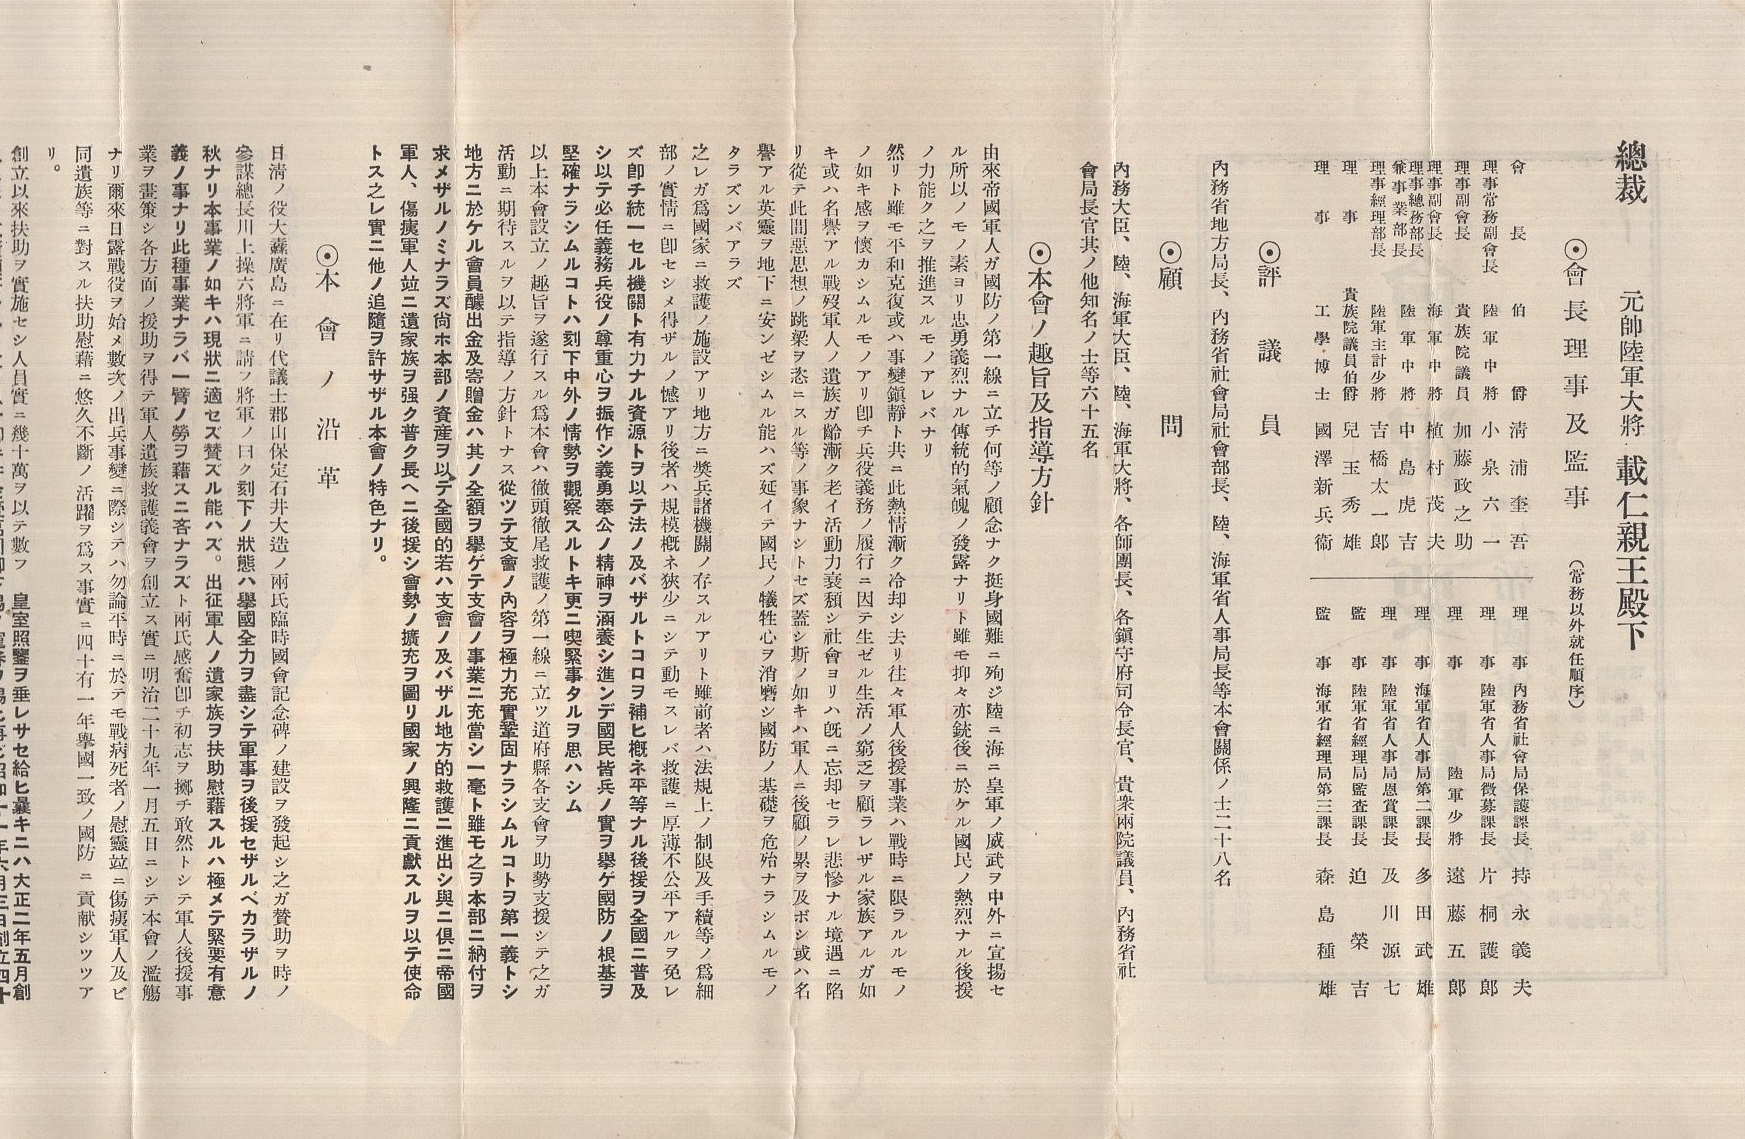 總裁　元帥陸軍大將　載仁親王殿下
⦿會長理事及監事　（常務以外就任順序）
會長　伯爵　淸浦奎吾
理事常務副會長　陸軍中將　小泉六一
理事副會長　貴族院議員　加藤政之助
理事副會長　海軍中將　植村茂夫
理事總務部長兼事業部長　陸軍中將　中島虎吉
理事經理部長　陸軍主計少將　吉橋太一郎
理事　貴族院議員伯爵　兒玉秀雄
理事　工學博士　國澤新兵衞
理事　內務省社會局保護課長　持永義夫
理事　陸軍省人事局徵募課長　片桐護郎
理事　陸軍少將　遠藤五郎
理事　海軍省人事局第二課長　多田武雄
理事　陸軍省人事局恩賞課長　及川源七
監事　陸軍省經理局監査課長　迫榮吉
監事　海軍省經理局第三課長　森島種雄
⦿評議員
內務省地方局長、內務省社會局社會部長、陸、海軍省人事局長等本會關係ノ士二十八名
⦿顧問
內務大臣、陸、海軍大臣、陸、海軍大將、各師團長、各鎭守府司令長官、貴衆兩院議員、內務省社
會局長官其ノ他知名ノ士等六十五名
⦿本會ノ趣旨及指導方針
由來帝國軍人ガ國防ノ第一線ニ立チ何等ノ顧念ナク挺身國難ニ殉ジ陸ニ海ニ皇軍ノ威武ヲ中外ニ宣揚セ
ル所以ノモノ素ヨリ忠勇義烈ナル傳統的氣魄ノ發露ナリト雖モ抑々亦銃後ニ於ケル國民ノ熱烈ナル後援
ノ力能ク之ヲ推進スルモノアレバナリ
然リト雖モ平和克復或ハ事變鎭靜ト共ニ此熱情漸ク冷却シ去リ往々軍人後援事業ハ戰時ニ限ラルルモノ
ノ如キ感ヲ懷カシムルモノアリ卽チ兵役義務ノ履行ニ因テ生ゼル生活ノ窮乏ヲ顧ラレザル家族アルガ如
キ或ハ名譽アル戰歿軍人ノ遺族ガ齡漸ク老イ活動力衰頽シ社會ヨリハ旣ニ忘却セラレ悲慘ナル境遇ニ陷
リ從テ此間惡思想ノ跳梁ヲ恣ニスル等ノ事象ナシトセズ蓋シ斯ノ如キハ軍人ニ後顧ノ累ヲ及ボシ或ハ名
譽アル英靈ヲ地下ニ安ンゼシムル能ハズ延イテ國民ノ犧牲心ヲ消磨シ國防ノ基礎ヲ危殆ナラシムルモノ
タラズンバアラズ
之レガ爲國家ニ救護ノ施設アリ地方ニ獎兵諸機關ノ存スルアリト雖前者ハ法規上ノ制限及手續等ノ爲細
部ノ實情ニ卽セシメ得ザルノ憾アリ後者ハ規模槪ネ狹少ニシテ動モスレバ救護ニ厚薄不公平アルヲ免レ
ズ卽チ統一セル機關ト有力ナル資源トヲ以テ法ノ及バザルトコロヲ補ヒ槪ネ平等ナル後援ヲ全國ニ普及
シ以テ必任義務兵役ノ尊重心ヲ振作シ義勇奉公ノ精神ヲ涵養シ進ンデ國民皆兵ノ實ヲ擧ゲ國防ノ根基ヲ
堅確ナラシムルコトハ刻下中外ノ情勢ヲ觀察スルトキ更ニ喫緊事タルヲ思ハシム
以上本會設立ノ趣旨ヲ遂行スル爲本會ハ徹頭徹尾救護ノ第一線ニ立ツ道府縣各支會ヲ助勢支援シテ之ガ
活動ニ期待スルヲ以テ指導ノ方針トナス從ツテ支會ノ內容ヲ極力充實鞏固ナラシムルコトヲ第一義トシ
地方ニ於ケル會員醵出金及寄贈金ハ其ノ全額ヲ擧ゲテ支會ノ事業ニ充當シ一毫ト雖モ之ヲ本部ニ納付ヲ
求メザルノミナラズ尙ホ本部ノ資産ヲ以テ全國的若ハ支會ノ及バザル地方的救護ニ進出シ與ニ俱ニ帝國
軍人、傷痍軍人竝ニ遺家族ヲ强ク普ク長ヘニ後援シ會勢ノ擴充ヲ圖リ國家ノ興隆ニ貢獻スルヲ以テ使命
トス之レ實ニ他ノ追隨ヲ許サザル本會ノ特色ナリ。
⦿本會ノ沿革
日淸ノ役大纛廣島ニ在リ代議士郡山保定石井大造ノ兩氏臨時國會記念碑ノ建設ヲ發起シ之ガ賛助ヲ時ノ
參謀總長川上操六將軍ニ請フ將軍ノ曰ク刻下ノ狀態ハ擧國全力ヲ盡シテ軍事ヲ後援セザルベカラザルノ
秋ナリ本事業ノ如キハ現狀ニ適セズ賛ズル能ハズ。出征軍人ノ遺家族ヲ扶助慰藉スルハ極メテ緊要有意
義ノ事ナリ此種事業ナラバ一臂ノ勞ヲ藉スニ吝ナラズト兩氏感奮卽チ初志ヲ擲チ敢然トシテ軍人後援事
業ヲ畫策シ各方面ノ援助ヲ得テ軍人遺族救護義會ヲ創立ス實ニ明治二十九年一月五日ニシテ本會ノ濫觴
ナリ爾來日露戰役ヲ始メ數次ノ出兵事變ニ際シテハ勿論平時ニ於テモ戰病死者ノ慰靈竝ニ傷痍軍人及ビ
同遺族等ニ對スル扶助慰藉ニ悠久不斷ノ活躍ヲ爲ス事實ニ四十有一年擧國一致ノ國防ニ貢献シツツア
リ。
創立以來扶助ヲ實施セシ人員實ニ幾十萬ヲ以テ數フ　皇室照鑒ヲ垂レサセ給ヒ曩キニハ大正二年五月創